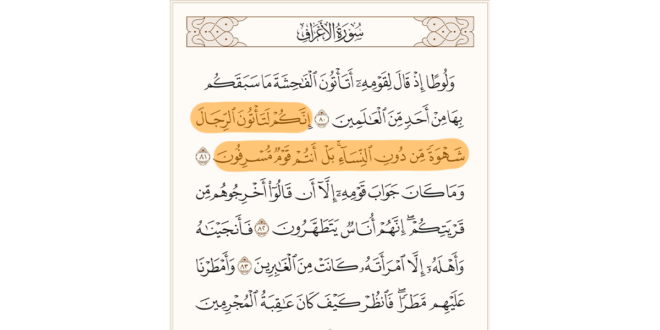 سُورَةُ الأَعْرَافِ
وَلُوطًا إِذْ قَالَ لِقَوْمِهِۦٓ أَتَأْتُونَ ٱلْفَٰحِشَةَ مَا سَبَقَكُم
بِهَا مِنْ أَحَدٍ مِّنَ ٱلْعَٰلَمِينَ ٨٠ إِنَّكُمْ لَتَأْتُونَ ٱلرِّجَالَ
شَهْوَةً مِّن دُونِ ٱلنِّسَآءِۚ بَلْ أَنتُمْ قَوْمٌ مُّسْرِفُونَ ٨١
وَمَا كَانَ جَوَابَ قَوْمِهِۦٓ إِلَّآ أَن قَالُوٓا۟ أَخْرِجُوهُم مِّن
قَرْيَتِكُمْۖ إِنَّهُمْ أُنَاسٌ يَتَطَهَّرُونَ ٨٢ فَأَنجَيْنَٰهُ
وَأَهْلَهُۥٓ إِلَّا ٱمْرَأَتَهُۥ كَانَتْ مِنَ ٱلْغَٰبِرِينَ ٨٣ وَأَمْطَرْنَا
عَلَيْهِم مَّطَرًاۖ فَٱنظُرْ كَيْفَ كَانَ عَٰقِبَةُ ٱلْمُجْرِمِينَ